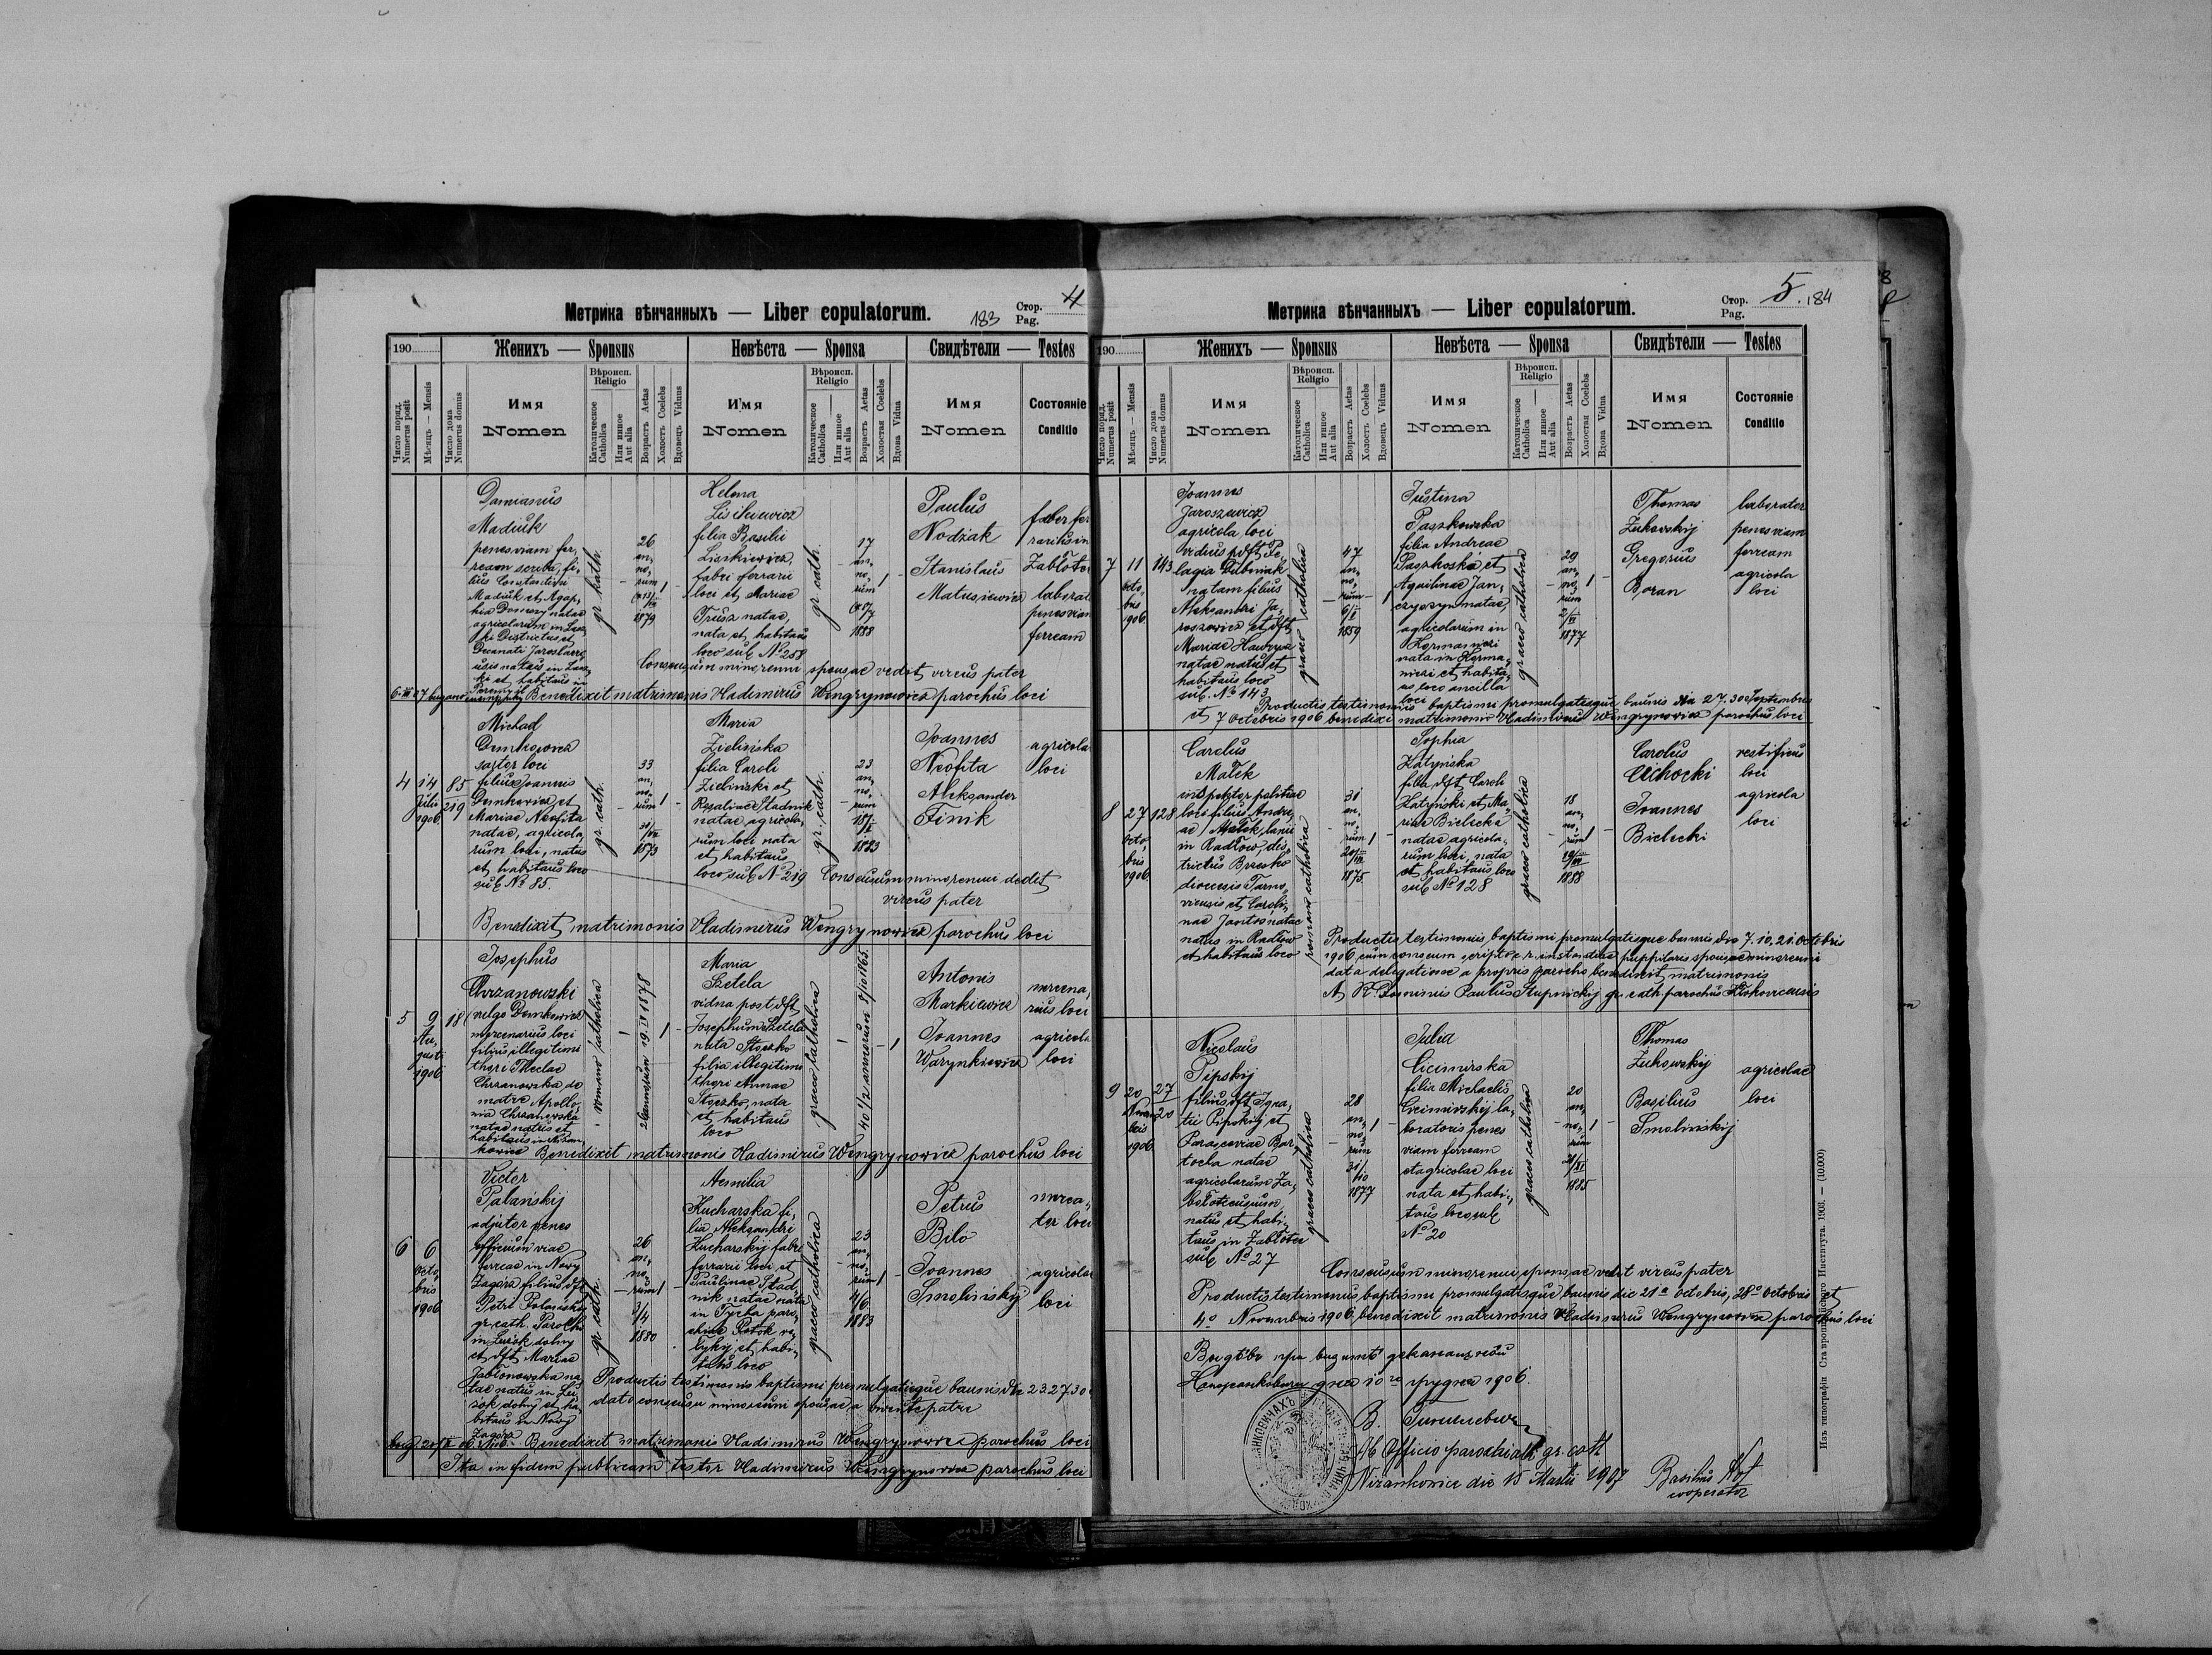 Метрика вѣнчанныхъ — Liber copulatorum.
183
Стор.
Pag.
4
190
Женихъ — Sponsus
Невѣста — Sponsa
Свидѣтели — Testes
Число поряд.
Numerus posit
Мѣсяцъ — Mensis
Число дома
Numerus domus
Имя
Nomen
Вѣроисп.
Religio
Католическое
Catholica
Или иное
Aut alia
Возрастъ Aetas
Холостъ Coelebs
Вдовецъ Viduus
Имя
Nomen
Вѣроисп.
Religio
Католическое
Catholica
Или иное
Aut alia
Возрастъ Aetas
Холостая Coelebs
Вдова Vidua
Имя
Nomen
Состояніе
Conditio
Damianus
Madiuk
penes viam fer,
ream scriba, fi,
lius Constantini
Madiuk et Agap,
natae
agricolarum in
Districtus et
Decanati
et habitans in
gr. cath.
26
an,
no,
rum 1
1879
Helena
Lisikiewicz
filia Basilii
Lisikiewicz,
fabri ferrarii
loci et Mariae
Trusz natae,
nata et habitans
loco sub No 258
gr. cath.
17
an,
no, 1
rum
1888
Paulus
Nodzak
Stanislaus
Matusiewicz
faber fer
rarius in
laborat
penes viam
ferream
Consensum minorenni sponsae dedit vivus pater
Benedixit matrimonio Vladimirus Wengrynowicz parochus loci
4 14 85
Julii 219
1906
Michael
Demkowicz
sartor loci
filius Joannis
Demkowicz et
Mariae Neofita
natae, agricola,
rum loci, natus
et habitans loco
sub No 85.
gr. cath.
33
an,
no,
rum 1
1873
Maria
Zielińska
filia Caroli
Zieliński et
Rosaliae Stadnik
natae agricola,
rum loci nata
et habitans
loco sub No 219
gr. cath.
23
an,
no,
rum
1883
Joannes
Neofita
Aleksander
Finik
agricola
loci
Consensum minorenni dedit
vivus pater
Benedixit matrimonio Vladimirus Wengrynowicz parochus loci
5 9 18
Au,
gusti
1906
Josephus
Chrzanowski
(vulgo Demkowicz)
mercenarius loci
filius illegitimi
thori Theclae
Chrzanowska de
matre Apollo,
nia Chrzanowska
natae natus et
habitans in Nizan,
kowice
romano catholica
26 annorum 19. IV 1878
1
Maria
Szetela
vidua post dft
Josephum Szetela
nata Stoczko
filia illegitimi
thori Annae
Stoczko, nata
et habitans
loco
graeco catholica
40 1/2 annorum
1
Antonis
Markiewicz
Joannes
Warynkiewicz
mercena,
rius loci
agricola
loci
Benedixit matrimonio Vladimirus Wengrynowicz parochus loci
6 6
Octo,
bris
1906
Victor
Polański
adjutor penes
officium viae
ferreae in Nowy
Zagórz filius dft
Petri Polański
gr. cath. Parochi
in
et dft Mariae
Jabłonowska na,
tae natus in
et ha,
bitans in Nowy
Zagórz
gr. cath.
26
an,
no,
rum 1
3/4
1880
Aemilia
Kucharska fi,
lia Aleksandri
Kucharskij fabri
ferrarii loci et
Paulinae Stad,
nik natae nata
in
et habi,
tans loco
graeco catholica
23
an,
no,
rum 1
4/6
1883
Petrus
Bilo
Joannes
Smolinskij
merca,
tor loci
agricola
loci
Productis testimoniis baptismi promulgatisque bannis die 23 27 30
dato consensu minorenni sponsae a vivente patre
Benedixit matrimonio Vladimirus Wengrynowicz parochus loci
Ita in fidem publicam testor Vladimirus Wengrynowicz parochus loci
Метрика вѣнчанныхъ — Liber copulatorum.
Стор.
Pag.
5. 184
190
Женихъ — Sponsus
Невѣста — Sponsa
Свидѣтели — Testes
Число поряд.
Numerus posit
Мѣсяцъ — Mensis
Число дома
Numerus domus
Имя
Nomen
Вѣроисп.
Religio
Католическое
Catholica
Или иное
Aut alia
Возрастъ Aetas
Холостъ Coelebs
Вдовецъ Viduus
Имя
Nomen
Вѣроисп.
Religio
Католическое
Catholica
Или иное
Aut alia
Возрастъ Aetas
Холостая Coelebs
Вдова Vidua
Имя
Nomen
Состояніе
Conditio
7 11 143
octo,
bris
1906
Joannes
Jaroszewicz
agricola loci
viduus p. dft Pe,
lagia Dubiniak
natam filius
Aleksandri Ja,
roszewicz et dft
Mariae
natae natus et
habitans loco
sub. No 143
graeco catholica
47
an,
no,
rum 1
1859
Justina
Paszkowska
filia Andreae
Paszkoski et
Aquilinae Jan,
czyszyn natae,
agricolarum in
Kormanici
nata in Korma,
nici et habita,
ns loco ancilla
loci
graeco catholica
29
an,
no, 1
rum
1877
Thomas
Zukowskij
Gregorius
Boran
laborator
penes viam
ferream
agricola
loci
Productis testimoniis baptismi promulgatisque bannis die 27. 30 Septembris
et 7 Octobris 1906 benedixi matrimonio Vladimirus Wengrynowicz parochus loci
8 27 128
Octo,
bris
1906
Carolus
Małek
inspector politiae
loci filius Andre,
ae Małek, lanii
in Radłow, dis,
trictus Brzesko
dioecesis Tarno,
viensis et Caroli,
nae Jantos natae
natus in Radłow
et habitans loco
romano catholica
31
an,
no,
rum 1
1875.
Sophia
Hatyńska
filia dft Caroli
Hatyński et Ma,
riae Bielecka
natae agricola,
rum loci, nata
et habitans loco
sub No 128
graeco catholica
18
an,
no,
rum 1
1888
Carolus
Cichocki
Joannes
Bielecki
vestificus
loci
agricola
loci
Productis testimoniis, baptismi promulgatisque bannis die 7. 10, 21. Octobris
data delegatione a proprio parocho benedixit matrimonio
A. R. Dominus Paulus Stupnickij gr. cath. parochus
9 20 27
20
1906
Nicolaus
Pipskij
filius dft Igna,
tii Pipskij et
Parasceviae Bar,
tocha natae
agricolarum Za,
błotcensium
natus et habi,
tans in Zabłotce
sub No 27
graeco catholica
28
an, 1
no,
rum
31/10
1877
Julia
Cicimirska
filia Michaelis
Cicimirskij la,
boratoris penes
viam ferream
et agricolae loci
nata et habi,
tans loco sub
No 20
graeco catholica
20
an,
no, 1
rum
1885
Thomas
Zukowskij
Basilius
Smolinskij
agricolae
loci
Consensum minorenni sponsae dedit vivus pater
Productis testimoniis baptismi promulgatisque bannis die 21a Octobris, 28a Octobris et
4a Novembris 1906, benedixit matrimonio Vladimirus Wengrynowicz parochus loci
1906.
Ab Officio parochiali gr. cath
Nizankowice die 15 Martii 1907
Basilius
cooperator
Изъ типографіи Ставропигійского Института. 1903. — (10.000)